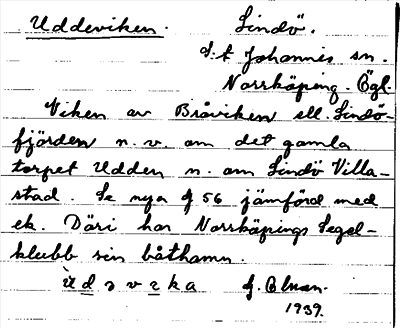 Uddeviken. Lindö.
S:t Johannis sn.
Norrköping. Ögl.
Viken av Bråviken ell. Lindö-
fjärden n.v. om det gamla
torpet Udden n. om Lindö Villa-
stad. Se nya g 56 jämförd med
ek. Däri har Norrköpings Segel-
klubb sin båthamn.
ùdəvɛka
1939.